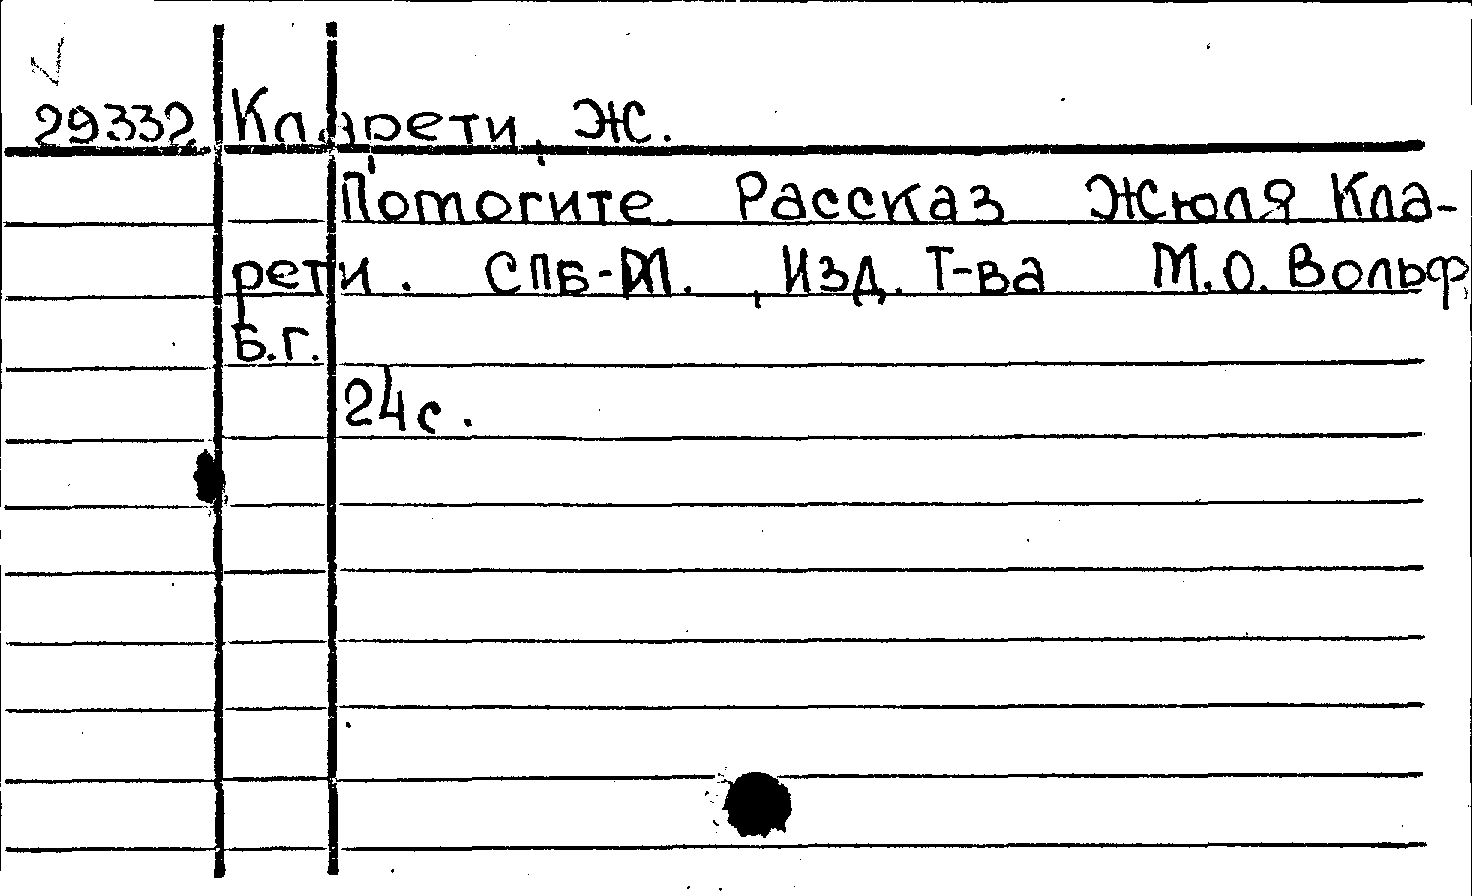 29332 Кларети, Ж.
Помогите. Рассказ Жюля Кла-
рети. СПБ-М., Изд. Т-ва М.О. Вольф,
Б.г.
24с.